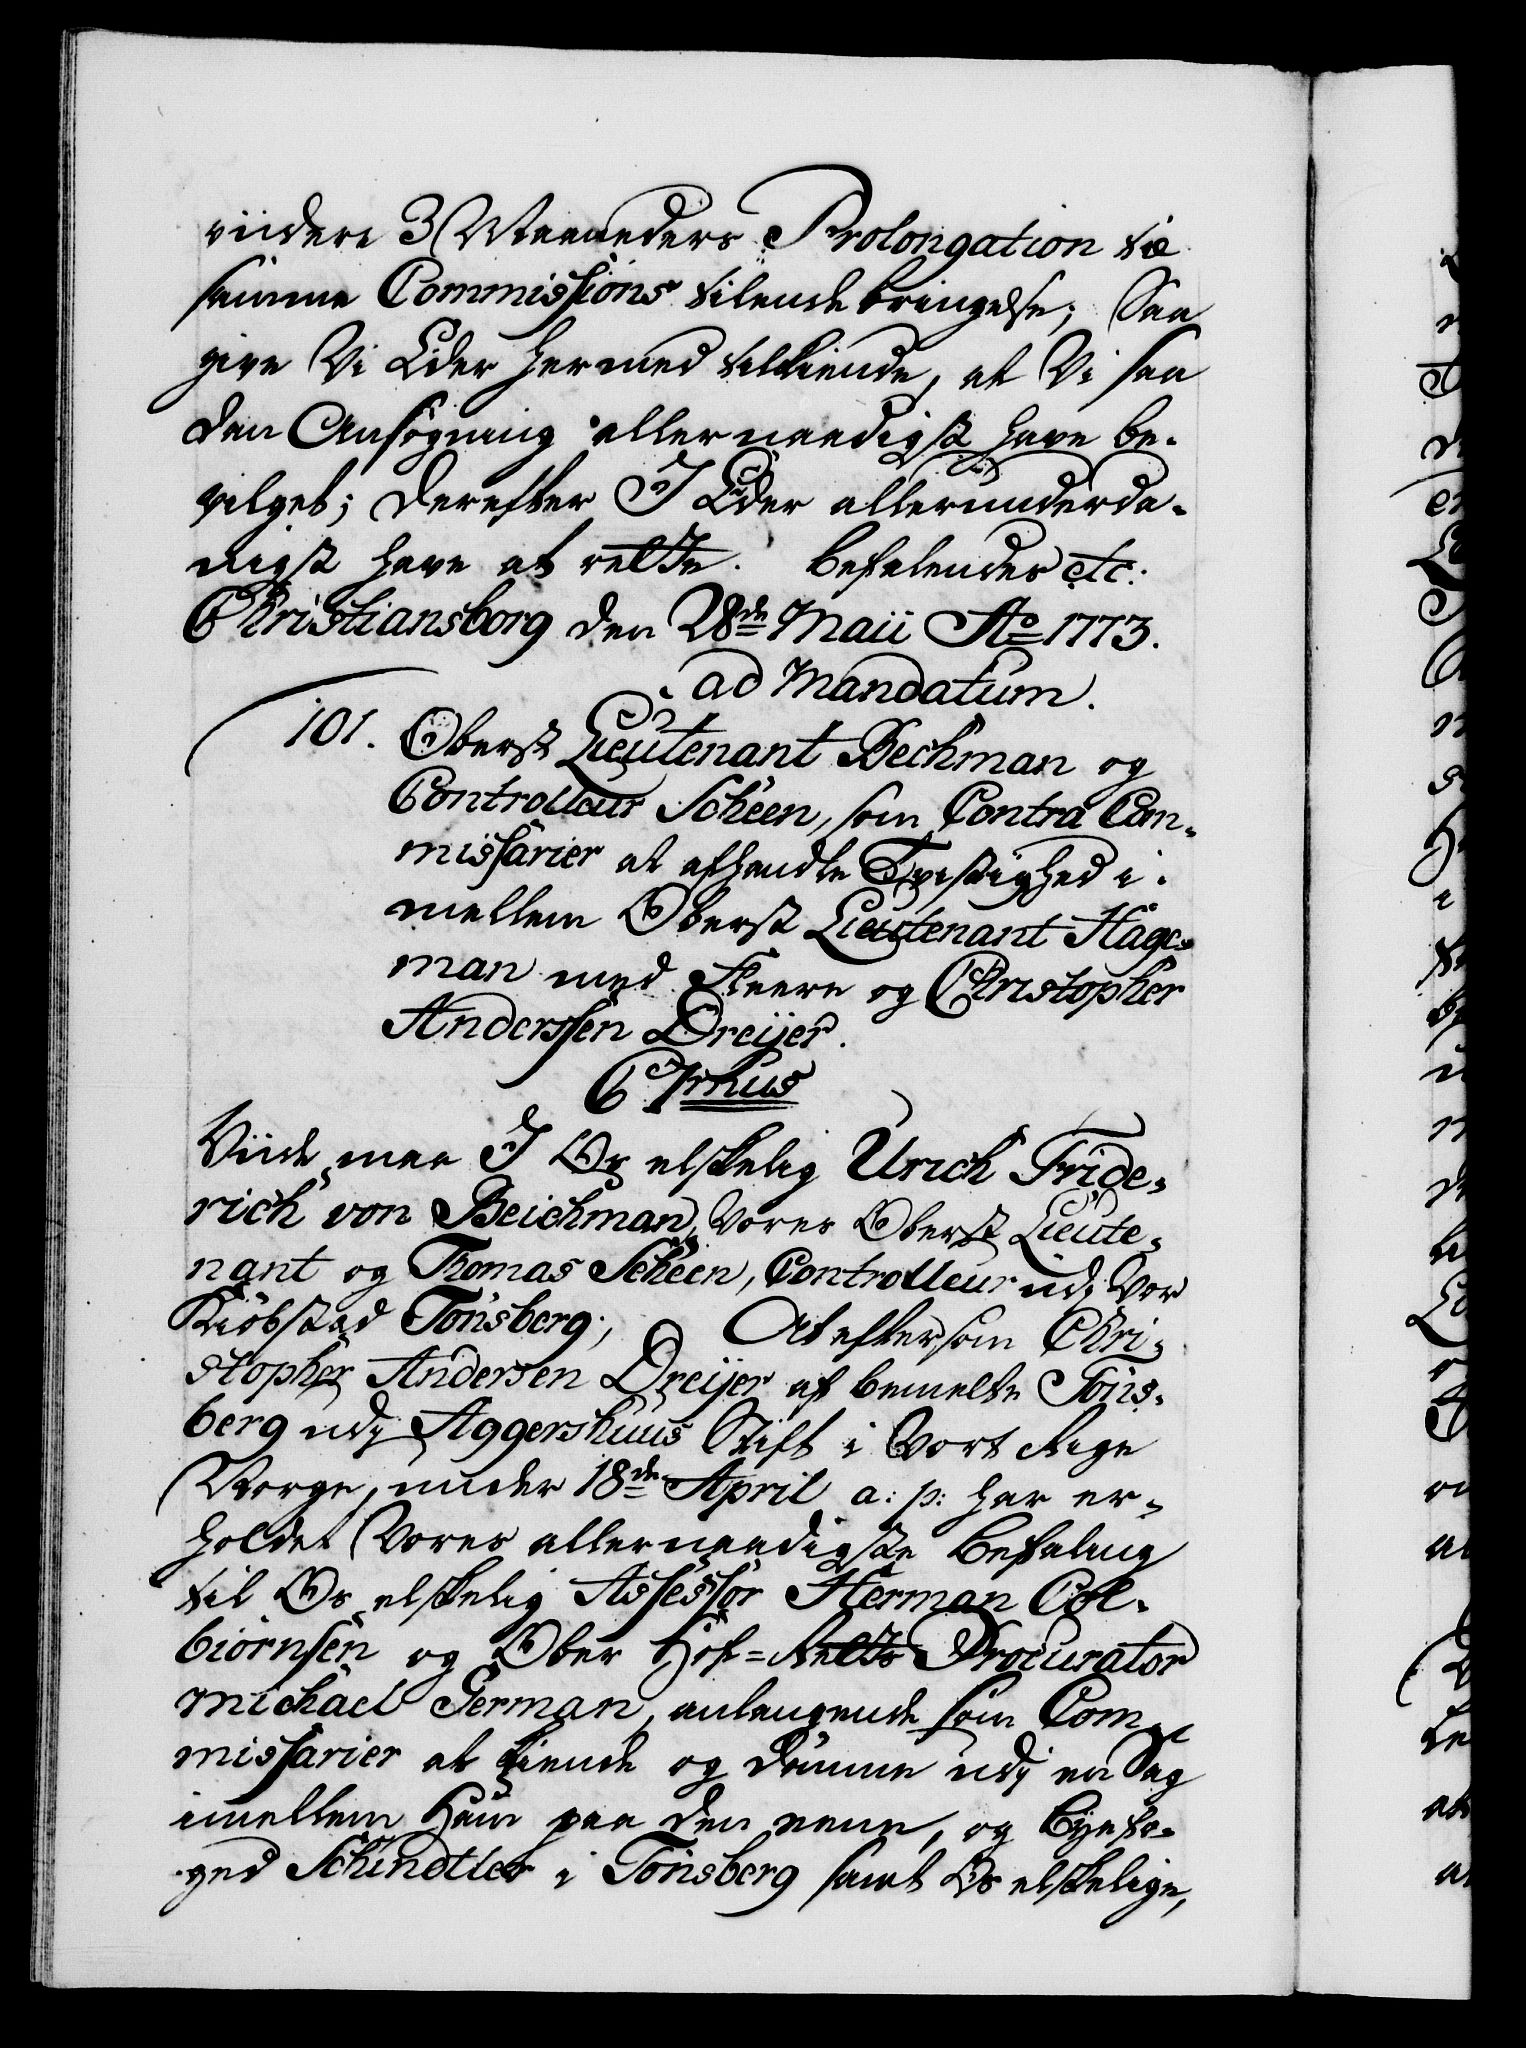 viidere 3 Maaneders Prolongation til
samme Commissions tilendebringelse; Saa
give Vi Eder hermed tilkiende, at Vi saa
dan Ansøgning allernaadigst have be-
vilget; derefter I Eder allerunderda-
nigst have at rette. Befalendes etc:
Christiansborg den 28de Maii Ao 1773.
ad Mandatum.
101. Oberst Lieutenant Bechman og
Controlleur Scheen, som Contra Com-
missarier at afhandle Tvistighed i-
mellem Oberst Lieutenant Hage-
man med Fleere og Christopher
Anderssen Dreijer.
C 7mus
Viide maa I Os elskelig Ulrich Fride-
rich von Beichman, Vores Oberst Lieute-
nant og Thomas Scheen, Controlleur udj Vor
Kiøbstad Tønsberg; At eftersom Chri-
stopher Andersen Dreijer af bemelte Tøns-
berg udj Aggershuus Stift i Vort Rige
Norge, under 18de April a: p: har er-
holdet Vores allernaadigste Befaling
til Os elskelig Assessor Herman Col-
biørnsen og Ober Hof-Retts Procurator
Michael German, anlangende som Com-
missarier at kiende og dømme udj en Sag
imellem Ham paa den eene, og Byefo-
ged Schindtler i Tønsberg samt Os elskelige,